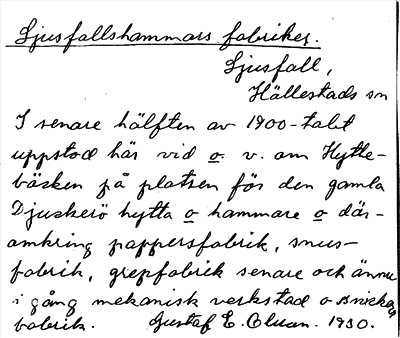 Ljusfallshammars fabriker.
Ljusfall,
Hällestads sn
I senare hälften av 1900-talet
uppstod här vid o. v. om Hytte-
bäcken på platsen för den gamla
Djuskerö hytta o hammare o där-
omkring pappersfabrik, snus-
fabrik, grepfabrik senare och ännu
i gång mekanisk verkstad o snickeri
fabrik. Gustaf E. 1930.